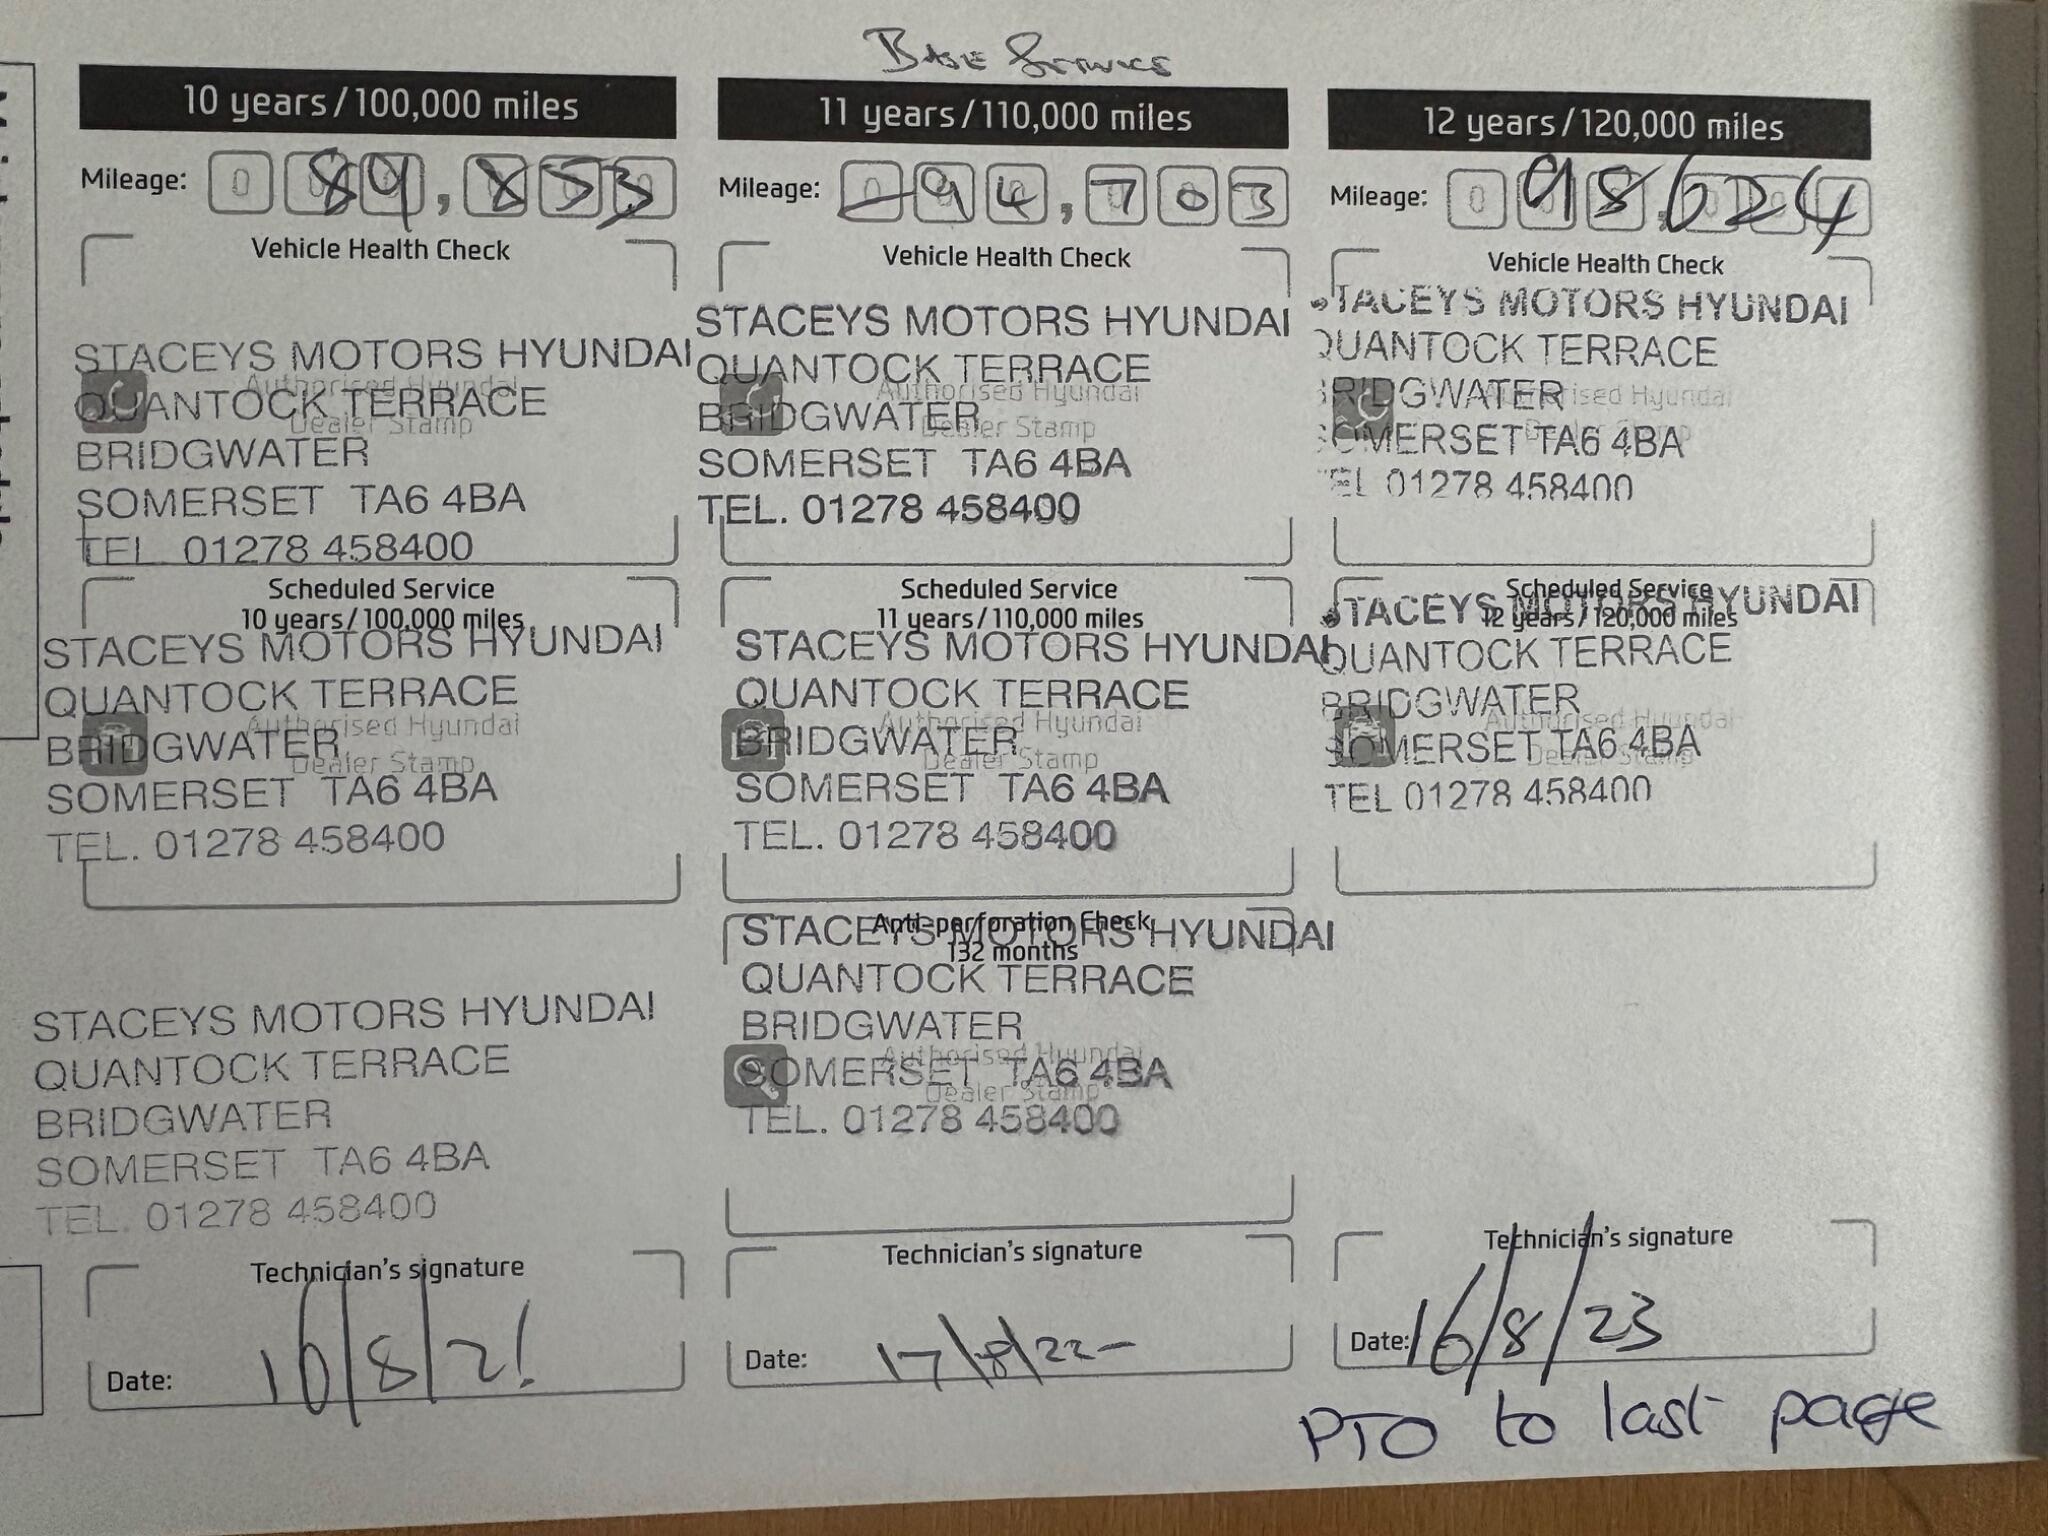 Base Service
10 years/100,000 miles
Mileage: 89,853
Vehicle Health Check
STACEYS MOTORS HYUNDAI
QUANTOCK TERRACE
BRIDGWATER
SOMERSET TA6 4BA
TEL. 01278 458400
Authorised Hyundai
Dealer Stamp
Scheduled Service
10 years/100,000 miles
STACEYS MOTORS HYUNDAI
QUANTOCK TERRACE
BRIDGWATER
SOMERSET TA6 4BA
TEL. 01278 458400
Authorised Hyundai
Dealer Stamp
STACEYS MOTORS HYUNDAI
QUANTOCK TERRACE
BRIDGWATER
SOMERSET TA6 4BA
TEL. 01278 458400
Technician's signature
Date: 10/8/21
11 years/110,000 miles
Mileage: 94,703
Vehicle Health Check
STACEYS MOTORS HYUNDAI
QUANTOCK TERRACE
BRIDGWATER
SOMERSET TA6 4BA
TEL. 01278 458400
Authorised Hyundai
Dealer Stamp
Scheduled Service
11 years/110,000 miles
STACEYS MOTORS HYUNDAI
QUANTOCK TERRACE
BRIDGWATER
SOMERSET TA6 4BA
TEL. 01278 458400
Authorised Hyundai
Dealer Stamp
Anti-perforation Check
132 months
STACEYS MOTORS HYUNDAI
QUANTOCK TERRACE
BRIDGWATER
SOMERSET TA6 4BA
TEL. 01278 458400
Authorised Hyundai
Dealer Stamp
Technician's signature
Date: 17/8/22
12 years/120,000 miles
Mileage: 98,624
Vehicle Health Check
STACEYS MOTORS HYUNDAI
QUANTOCK TERRACE
BRIDGWATER
SOMERSET TA6 4BA
TEL 01278 458400
Authorised Hyundai
Dealer Stamp
Scheduled Service
12 years/120,000 miles
STACEYS MOTORS HYUNDAI
QUANTOCK TERRACE
BRIDGWATER
SOMERSET TA6 4BA
TEL 01278 458400
Authorised Hyundai
Dealer Stamp
Technician's signature
Date: 16/8/23
PTO to last page